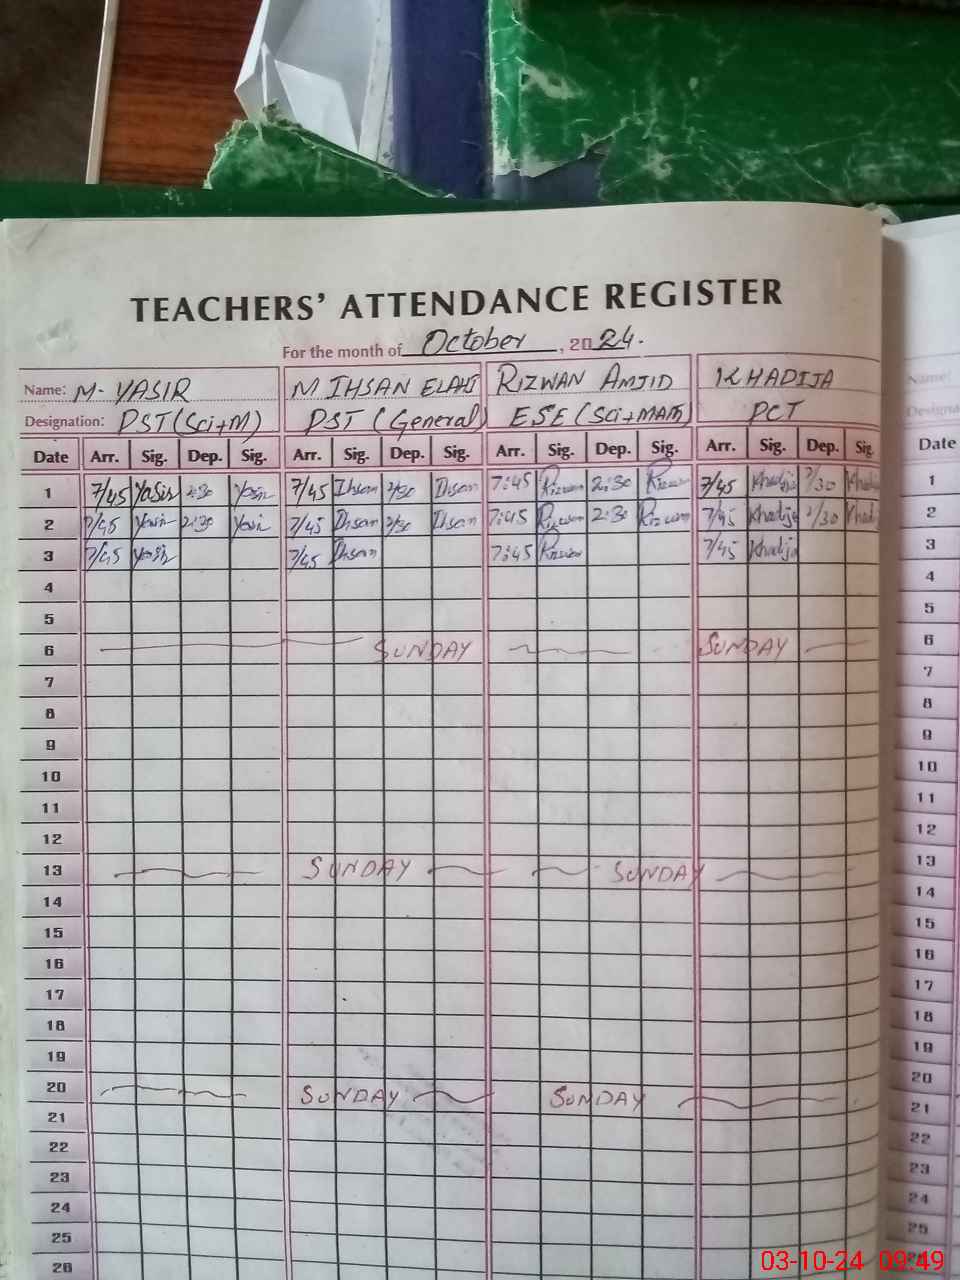 TEACHERS' ATTENDANCE REGISTER
For the month of October, 2024.
Name: M. YASIR M IHSAN ELAHI RIZWAN AMJID KHADIJA Name:
Designation: PST (Sci+M) PST (General) ESE (Sci+MATH) PCT Designa
Date Arr. Sig. Dep. Sig. Arr. Sig. Dep. Sig. Arr. Sig. Dep. Sig. Arr. Sig. Dep. Sig. Date
1 7/45 Yasir 2:30 Yasir 7/45 Ihsan 2/30 Ihsan 7:45 Rizwan 2:30 Rizwan 7/45 Khadija 2/30 Khadija 1
2 7/45 Yasir 2:30 Yasir 7/45 Ihsan 2/30 Ihsan 7:45 Rizwan 2:30 Rizwan 7/45 Khadija 2/30 Khadija 2
3 7/45 Yasir 7/45 Ihsan 7:45 Rizwan 7/45 Khadija 3
4 4
5 5
6 SUNDAY SUNDAY 6
7 7
8 8
9 9
10 10
11 11
12 12
13 SUNDAY SUNDAY 13
14 14
15 15
16 16
17 17
18 18
19 19
20 SUNDAY SUNDAY 20
21 21
22 22
23 23
24 24
25 25
26
03-10-24 09:49